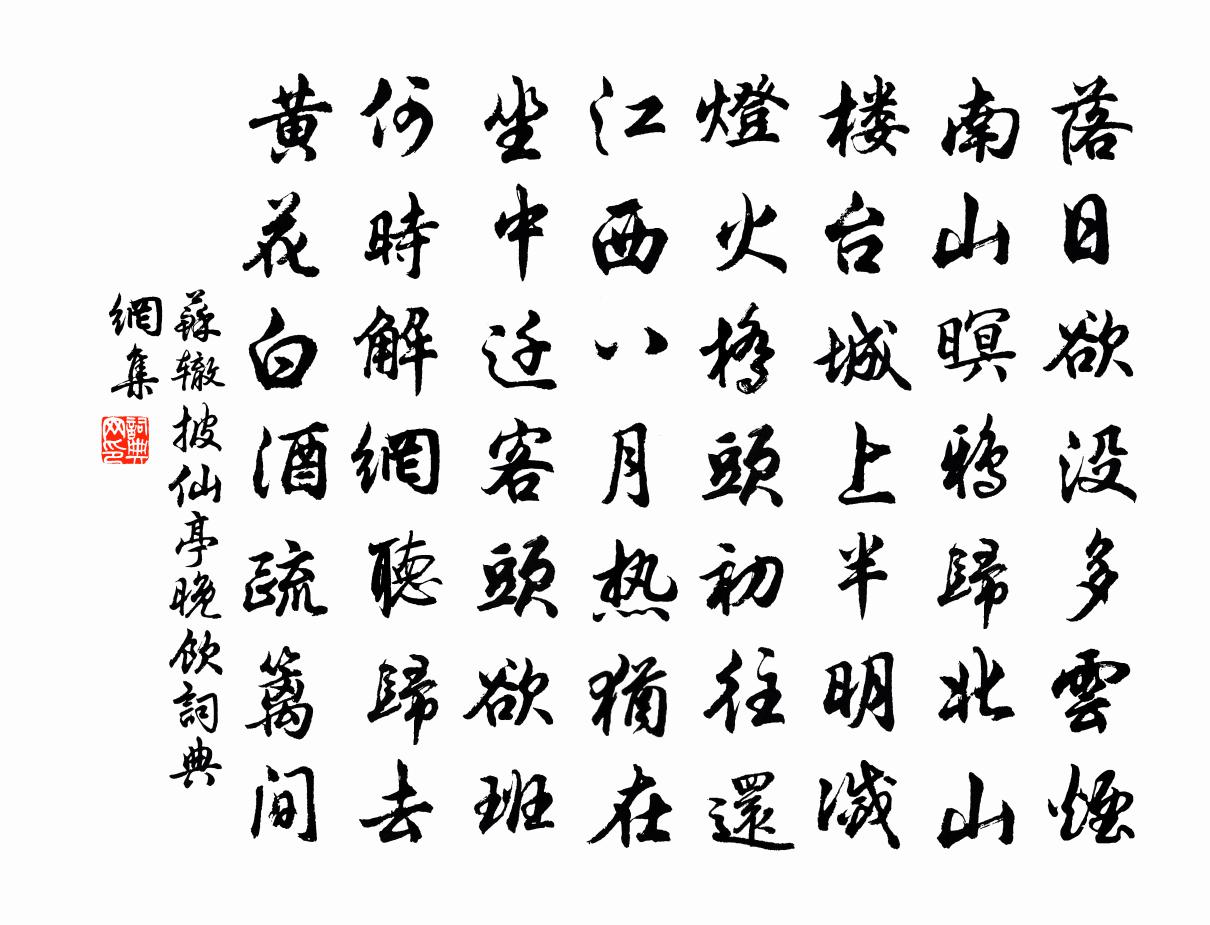 落日欲没多雲煙
南山暝鴉歸北山
楼台城上半明滅
燈火橋頭初往還
江西八月热猶在
坐中迁客頭欲班
何時解網聽歸去
黄花白酒疏篱间
蘇辙披仙亭晚飲詞典
網集
詞典
网印